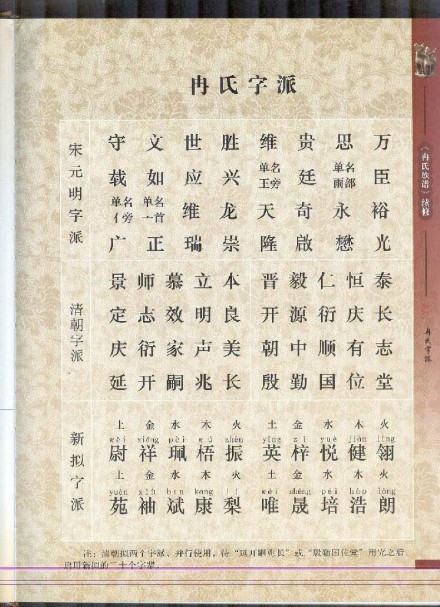 冉氏字派
宋元明字派
守 文 世 胜 维 贵 思 万
载 如 应 兴 单名王旁 廷 单名雨部 臣
单名亻旁 单名一首 维 龙 天 奇 永 裕
广 正 瑞 崇 隆 啟 懋 光
清朝字派
景 师 慕 立 本 晋 毅 仁 恒 泰
定 志 效 明 良 开 源 衍 庆 长
庆 衍 家 声 美 朝 中 顺 有 志
延 开 嗣 兆 长 殷 勤 国 位 堂
新拟字派
土 金 水 木 火 土 金 水 木 火
wèi xiáng pèi wú zhèn yīng zǐ yuè jiàn líng
尉 祥 珮 梧 振 英 梓 悦 健 翎
土 金 水 木 火 土 金 水 木 火
yuàn xiù bīn kāng wéi shèng péi hào lǎng
苑 袖 斌 康 梨 唯 晟 培 浩 朗
注：清朝拟两个字派，并行使用，待“延开嗣兆长”或“殷勤国位堂”用完之后，
启用新拟的二十个字辈。
《冉氏族谱》续修
冉氏字派